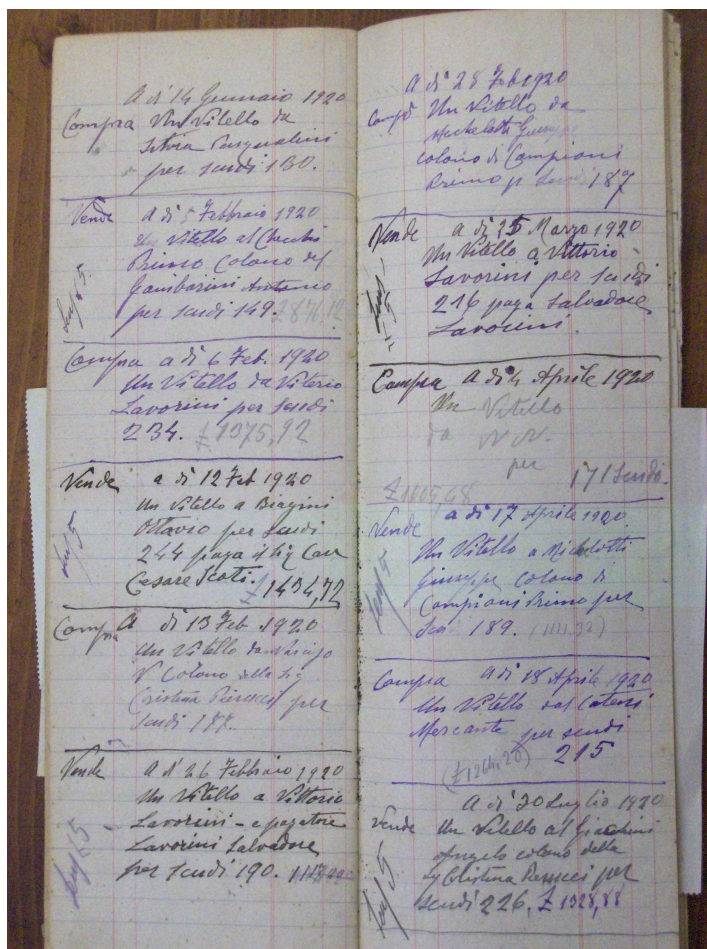 A di 14 Gennaio 1920
Compra Un Vitello da
Silvia Pasqualini
per scudi 130.
Vende A di 5 Febbraio 1920
Un Vitello al Checchi
Primo Colono del
Gambarini Antonio
per scudi 149. £ 876,12
Compra a di 6 Feb. 1920
Un Vitello da Vitorio
Lavorini per scudi
234. £ 1375,92
Vende a di 12 Feb 1920
Un Vitello a Biagini
Ottavio per scudi
244 paga il Sig Cav
Cesare Scoti. £ 1434,72
Compra A di 13 Feb. 1920
Un Vitello da
N Colono della Sig
Cristina per
scudi 177.
Vende A di 26 Febbraio 1920
Un Vitello a Vittorio
Lavorini - e pagatore
Lavorini Salvadore
per scudi 190.
A di 28 Feb 1920
Comprò Un Vitello da
Michelotti Giuseppe
colono di Campioni
Primo p scudi 187
Vende a di 25 Marzo 1920
Un Vitello a Vittorio
Lavorini per scudi
216 paga Salvadore
Lavorini.
Compra A di 4 Aprile 1920
Un Vitello
da N N.
per 171 scudi.
£ 1005,48
Vende a di 17 Aprile 1920.
Un Vitello a Michelotti
Giuseppe colono di
Campioni Primo per
Scudi 189. (1111,32)
Compra A di 18 Aprile 1920
Un Vitello dal Caterzi
Mercante per scudi
(£ 1264,20) 215
A di 20 Luglio 1920
Vende Un Vitello al Giachini
Angelo colono della
Sig Cristina per
scudi 226. £ 1328,88